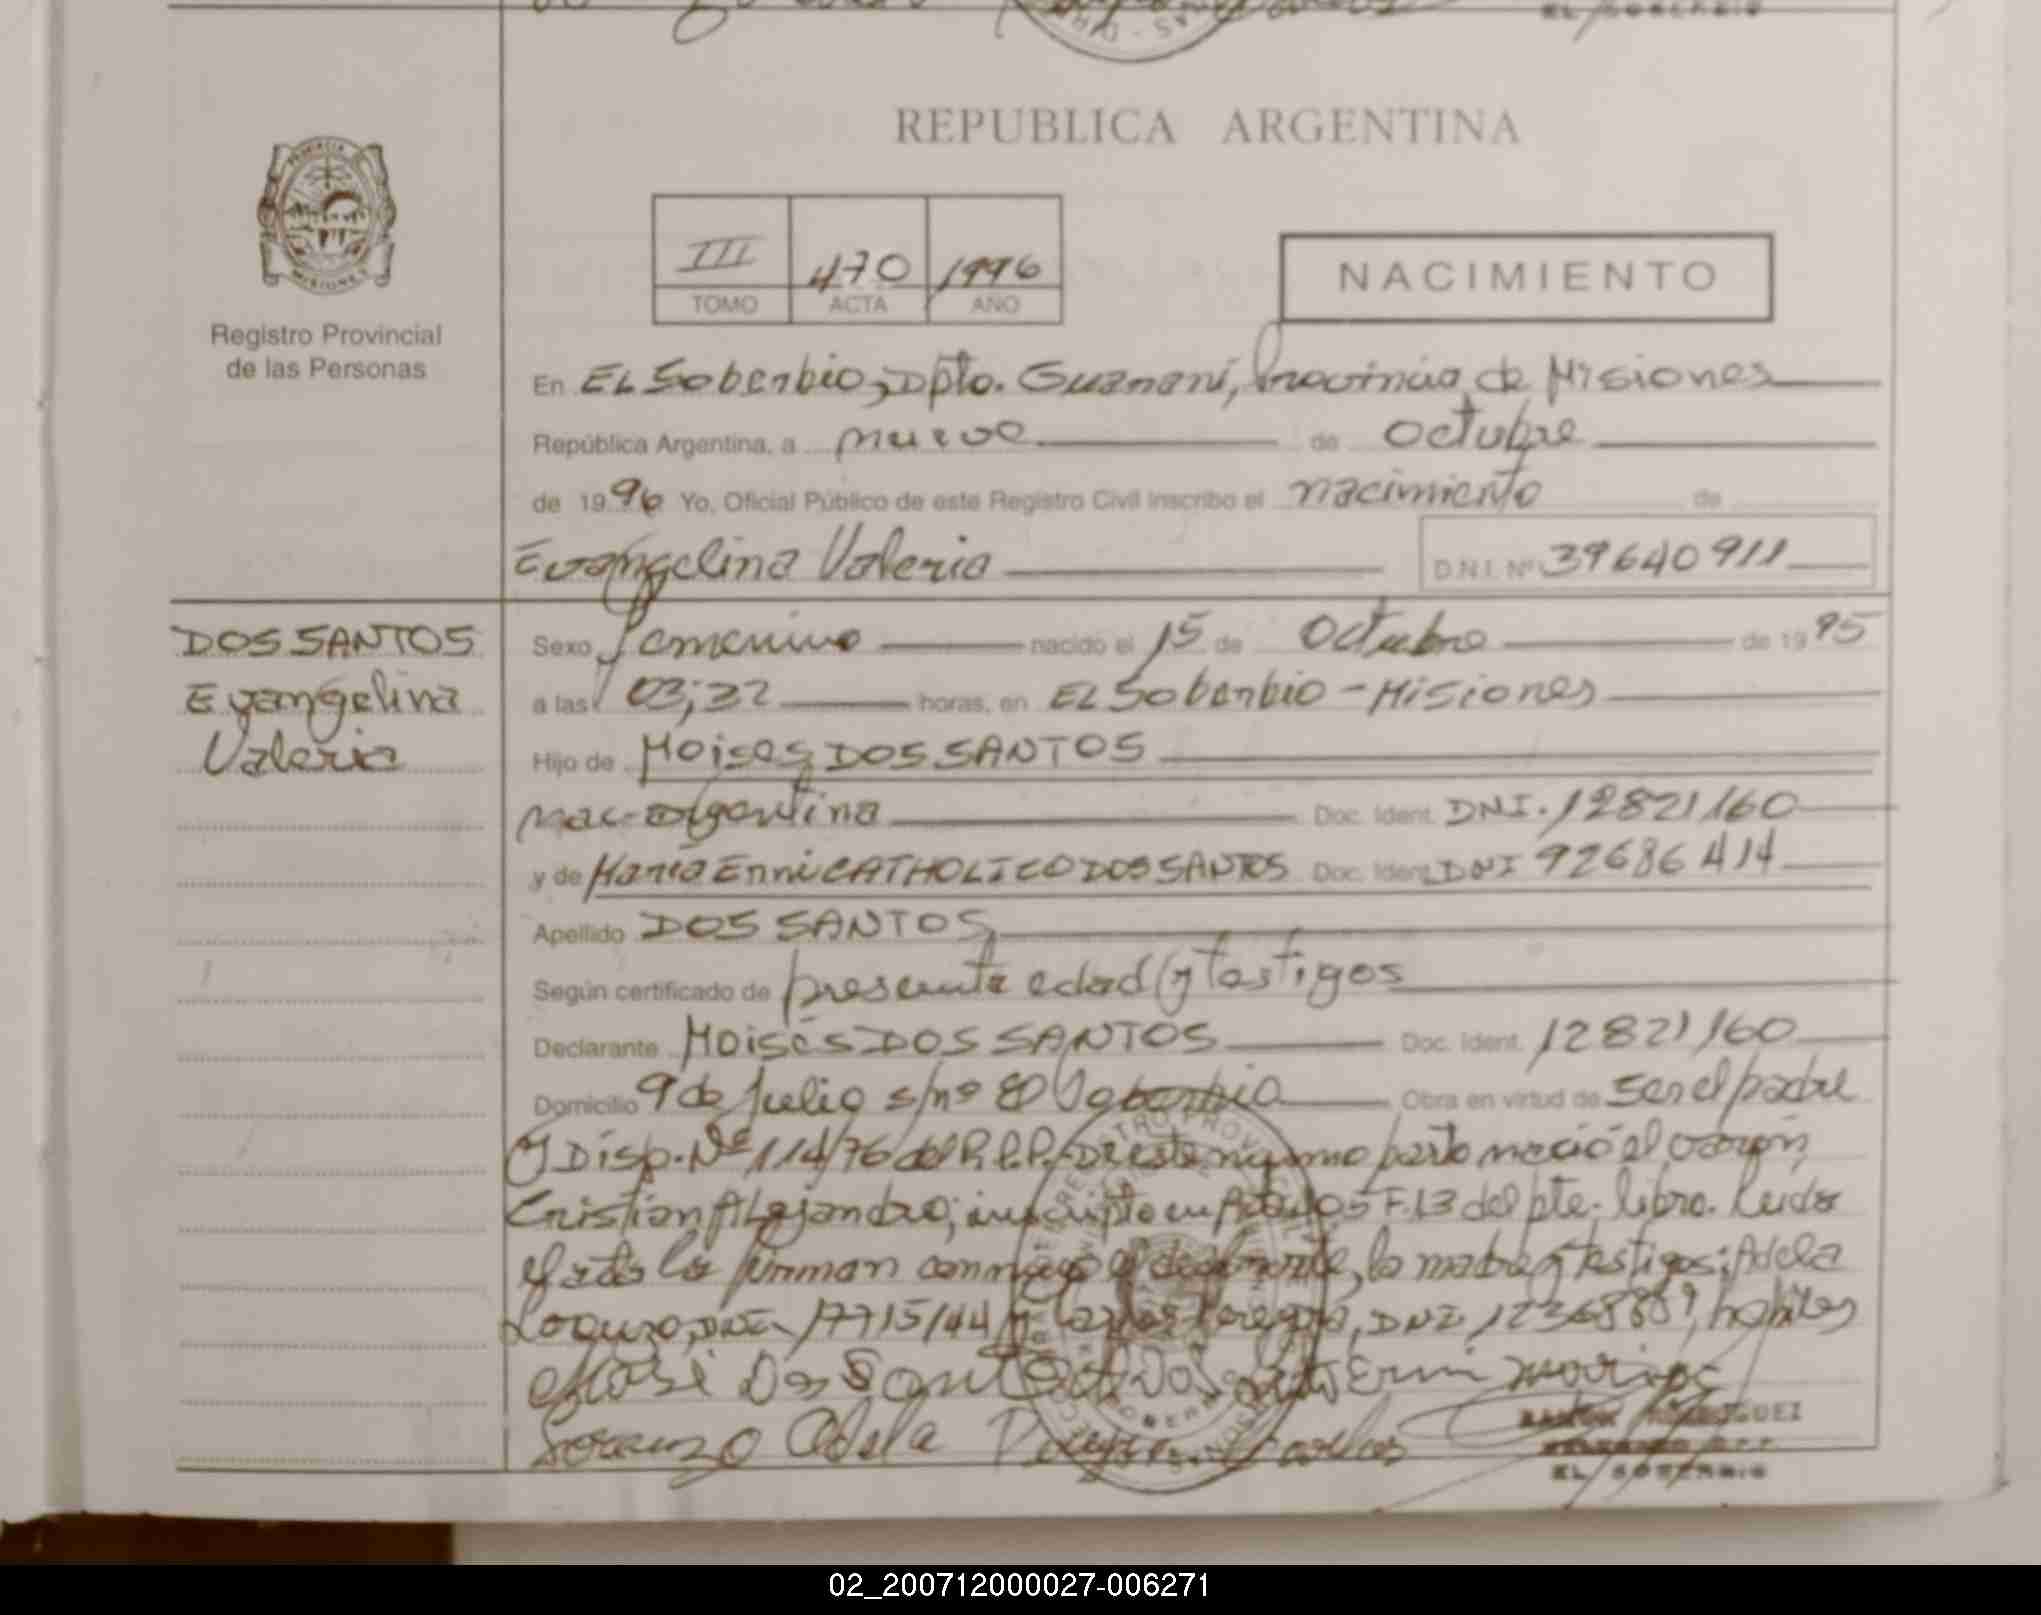 REPUBLICA ARGENTINA
PROVINCIA DE
MISIONES
Registro Provincial
de las Personas
III 470 1996
TOMO ACTA AÑO
NACIMIENTO
En EL Soberbio, Dpto. Guaraní, Provincia de Misiones
República Argentina, a nueve de octubre
de 1996 Yo, Oficial Público de este Registro Civil inscribo el nacimiento de
Evangelina Valeria D.N.I. Nº 39640911
DOS SANTOS
Evangelina
Valeria
Sexo femenino nacido el 15 de Octubre de 1995
a las 03;32 horas, en EL Soberbio - Misiones
Hijo de Moises DOS SANTOS
nac. argentina Doc. Ident. DNI. 12821160
y de María Enni CATHOLICO DOS SANTOS Doc. Ident. DNI 92686414
Apellido DOS SANTOS
Según certificado de presunta edad y testigos
Declarante Moisés DOS SANTOS Doc. Ident. 12821160
Domicilio 9 de Julio s/nº El Soberbio Obra en virtud de ser el padre
y Disp. Nº 114/76 del R.P.P. De este mismo parto nació el varón,
Cristian Alejandro; inscripto en F.13 del pte. libro. Leída
el acta la firman conmigo el declarante, la madre y testigos: Adela
DNI. 17715144 y Carlos DNI. 12368889, hábiles
Dos Santos
Adela Carlos
RAMON RODRIGUEZ
EL SOBERBIO
02_200712000027-006271